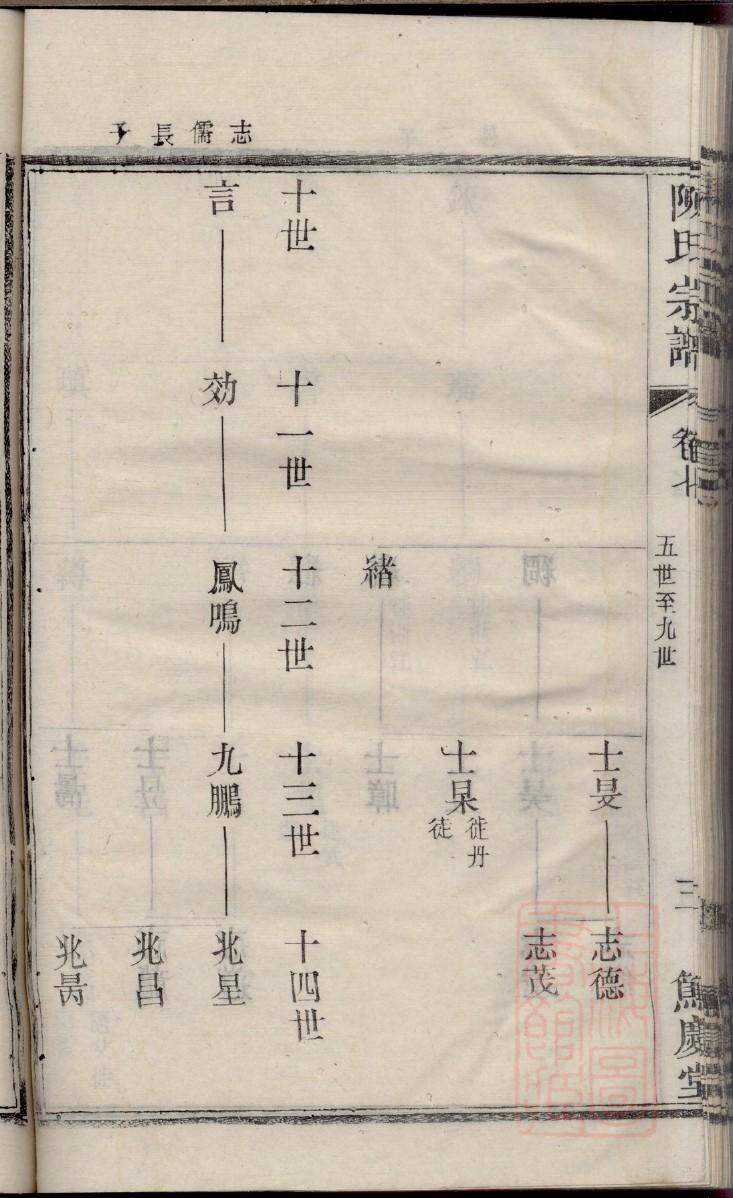 陳氏宗譜
卷七
五世至九世
三
篤慶堂
士旻
志德
志茂
士杲
徙丹
徒
緒
十世
十一世
十二世
十三世
十四世
志儒長子
言
効
鳳鳴
九鵬
兆星
兆昌